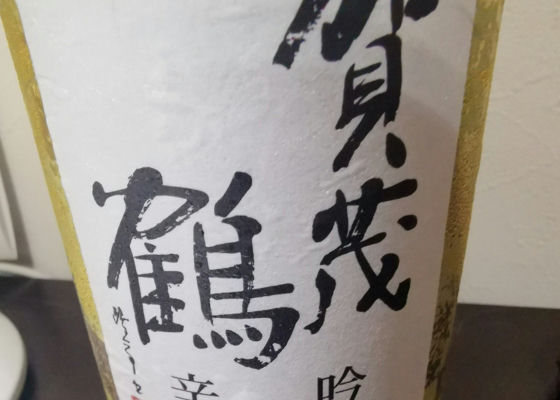 賀茂
鶴
吟
辛